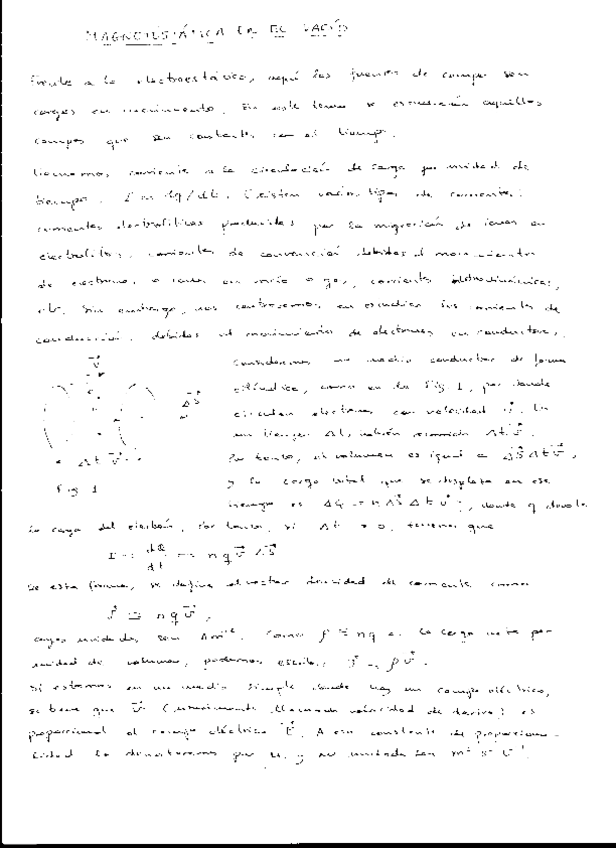 MAGNETOSTÁTICA EN EL VACÍO
Frente a la electrostática, aquí las fuentes de campo son
cargas en movimiento. En este tema se estudiarán aquellos
campos que son constantes con el tiempo.
Llamamos corriente a la circulación de carga por unidad de
tiempo. I = dq/dt. Existen varios tipos de corriente:
corrientes electrolíticas producidas por la migración de iones en
electrolitos, corrientes de convección debidas al movimiento
de electrones o iones en vacío o gas, corrientes
etc. Sin embargo, nos centraremos en estudiar las corrientes de
conducción, debidas al movimiento de electrones en conductores.
Consideremos un medio conductor de forma
cilíndrica, como en la Fig 1, por donde
circulan electrones con velocidad v⃗. En
un tiempo Δt, habrán recorrido Δt v⃗.
Por tanto, el volumen es igual a ΔS⃗ Δt v⃗,
y la carga total que se desplaza en ese
tiempo es ΔQ = nqΔS⃗ Δt v⃗, donde q denota
v⃗
ΔS⃗
Δt v⃗
Fig 1
la carga del electrón. Por tanto, si Δt → 0, tenemos que
I = dQ/dt = nq v⃗ ΔS⃗
De esta forma, se define el vector densidad de corriente como
J⃗ = nq v⃗,
cuyas unidades son Am⁻². Como ρ = nq es la carga neta por
unidad de volumen, podemos escribir J⃗ = ρv⃗.
Si estamos en un medio simple donde hay un campo eléctrico,
se tiene que v⃗ (usualmente llamada velocidad de deriva) es
proporcional al campo eléctrico E⃗. A esa constante de proporciona-
lidad la denotaremos por μ, y su unidad son m² s⁻¹ V⁻¹.